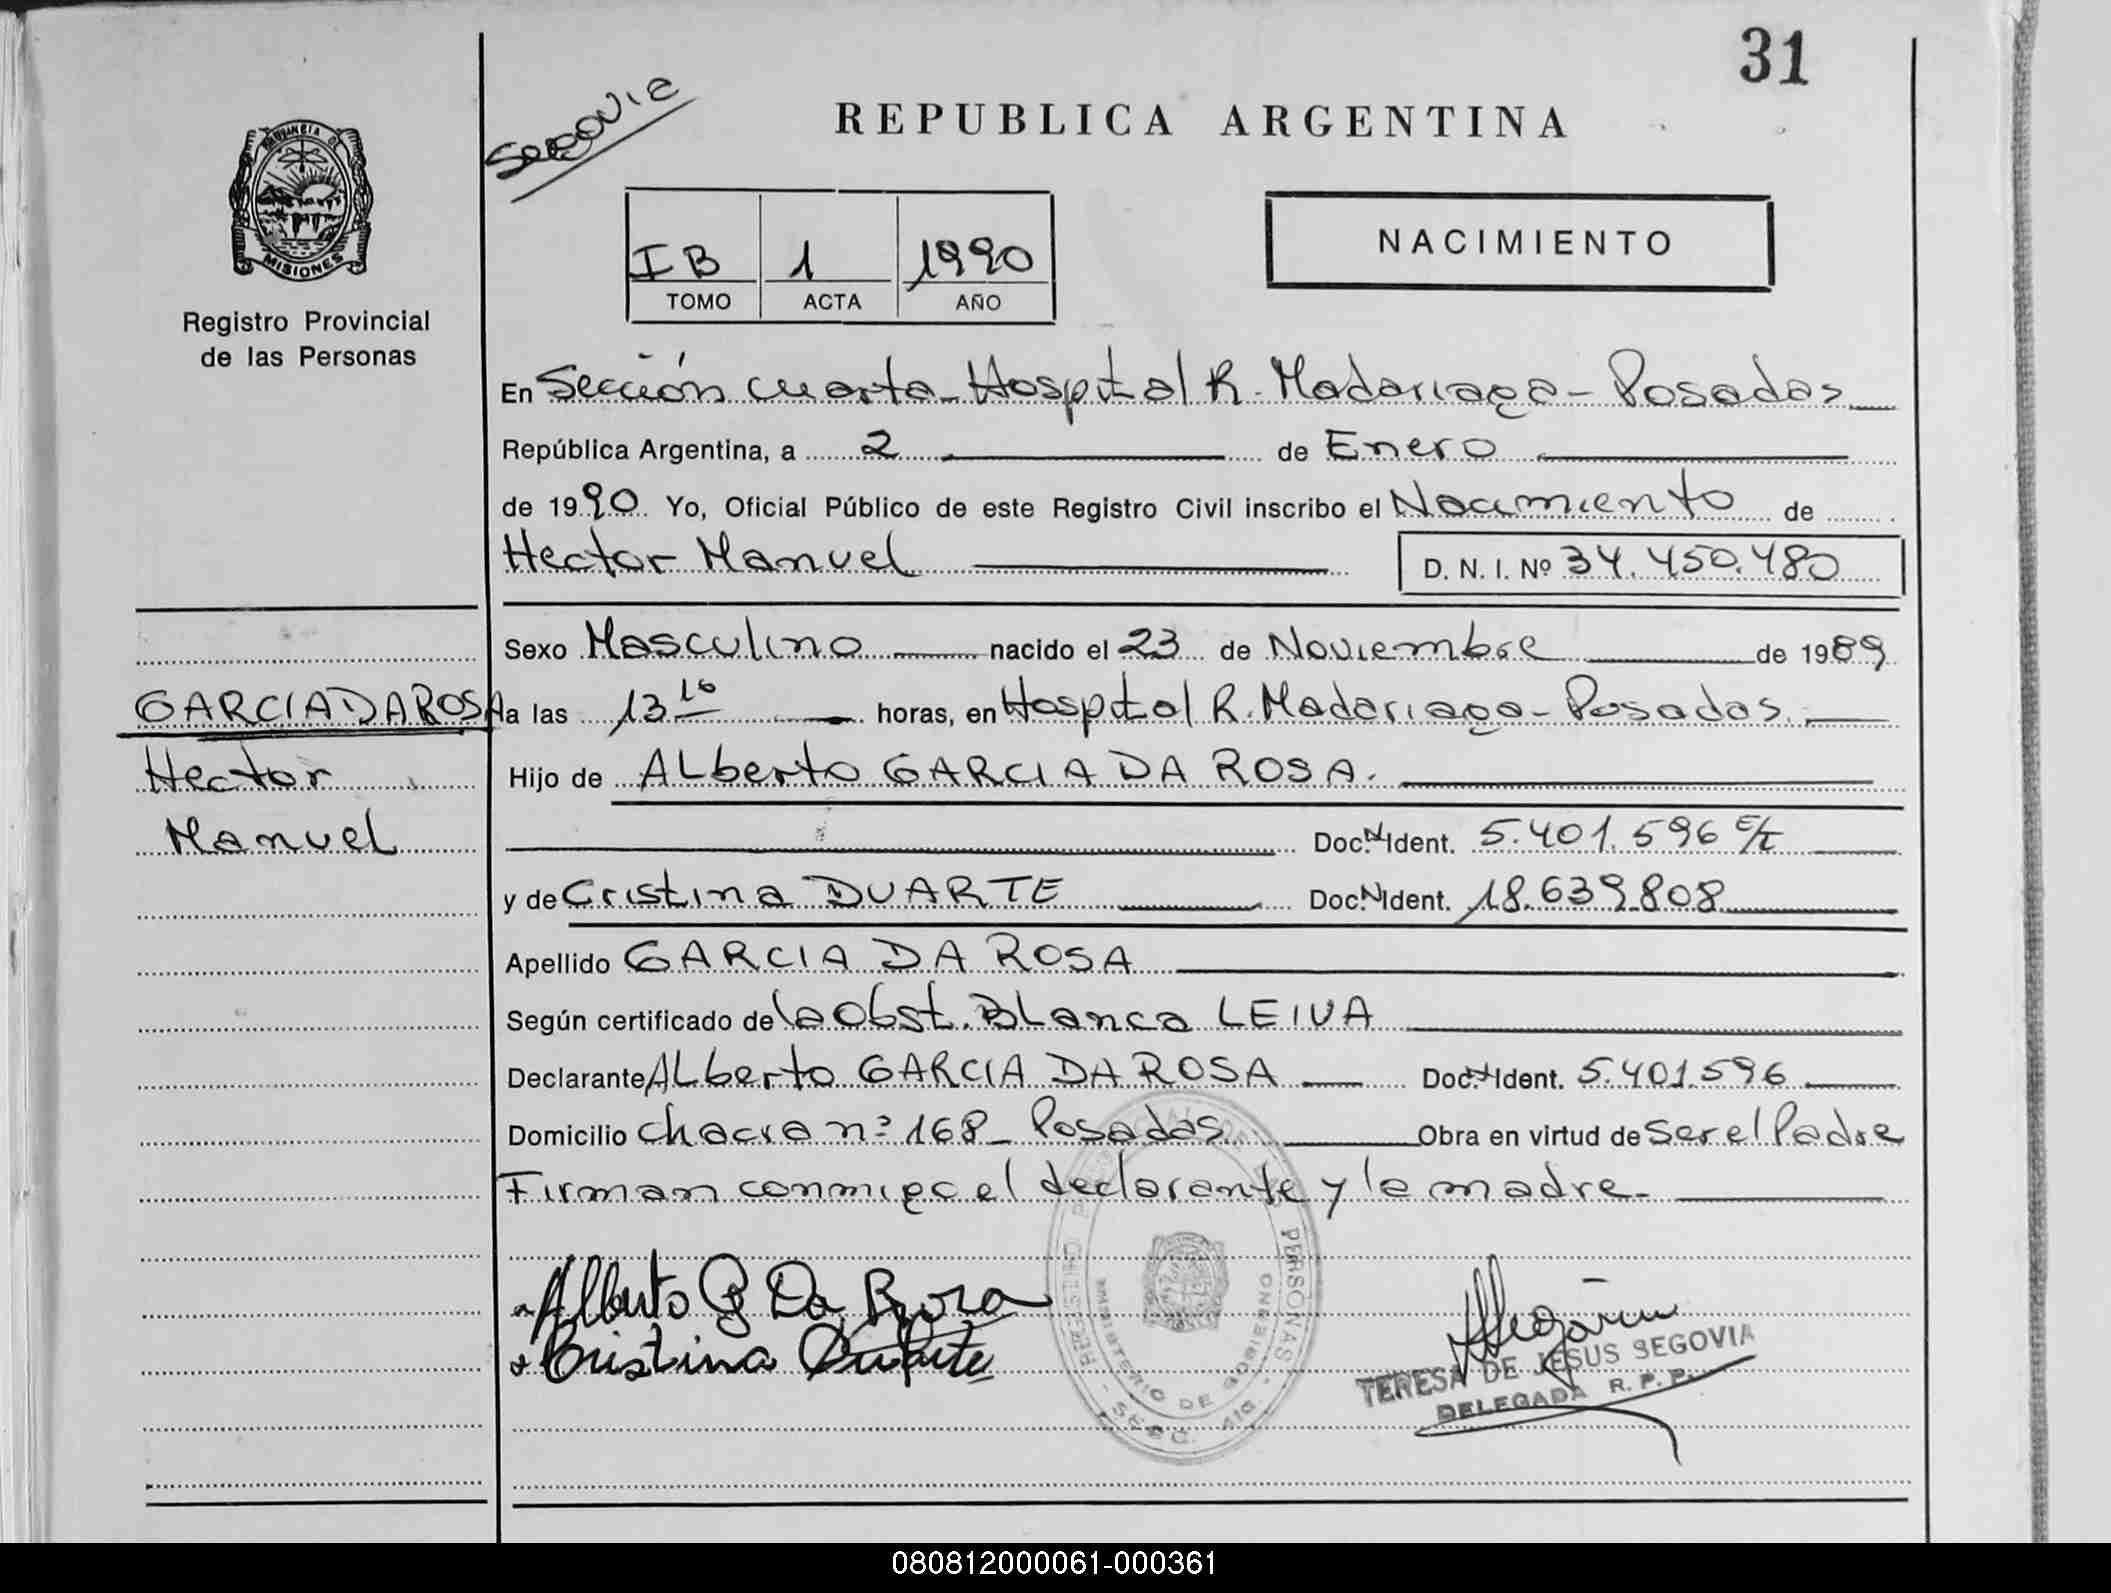 31
Segovia
REPUBLICA ARGENTINA
PROVINCIA DE
MISIONES
Registro Provincial
de las Personas
IB 1 1990
TOMO ACTA AÑO
NACIMIENTO
En Sección cuarta - Hospital R. Madariaga - Posadas
República Argentina, a 2 de Enero
de 1990 Yo, Oficial Público de este Registro Civil inscribo el Nacimiento de
Hector Manuel D. N. I. Nº 34.450.480
Sexo Masculino nacido el 23 de Noviembre de 1989
GARCIA DA ROSA
Hector
Manuel
a las 13 10 horas, en Hospital R. Madariaga - Posadas.
Hijo de Alberto GARCIA DA ROSA.
Doc. N Ident. 5.401.596 C/I
y de Cristina DUARTE Doc. N Ident. 18.639.808
Apellido GARCIA DA ROSA
Según certificado de la Obst. Blanca LEIVA
Declarante Alberto GARCIA DA ROSA Doc. Ident. 5.401.596
Domicilio chacra nº 168 - Posadas Obra en virtud de ser el Padre
Firman conmigo el declarante y la madre.
Alberto G Da Rosa
Cristina Duarte
REGISTRO PROVINCIAL DE LAS PERSONAS
MINISTERIO DE GOBIERNO
SECC. 4ta
TERESA DE JESUS SEGOVIA
DELEGADA R. P. P.
080812000061-000361